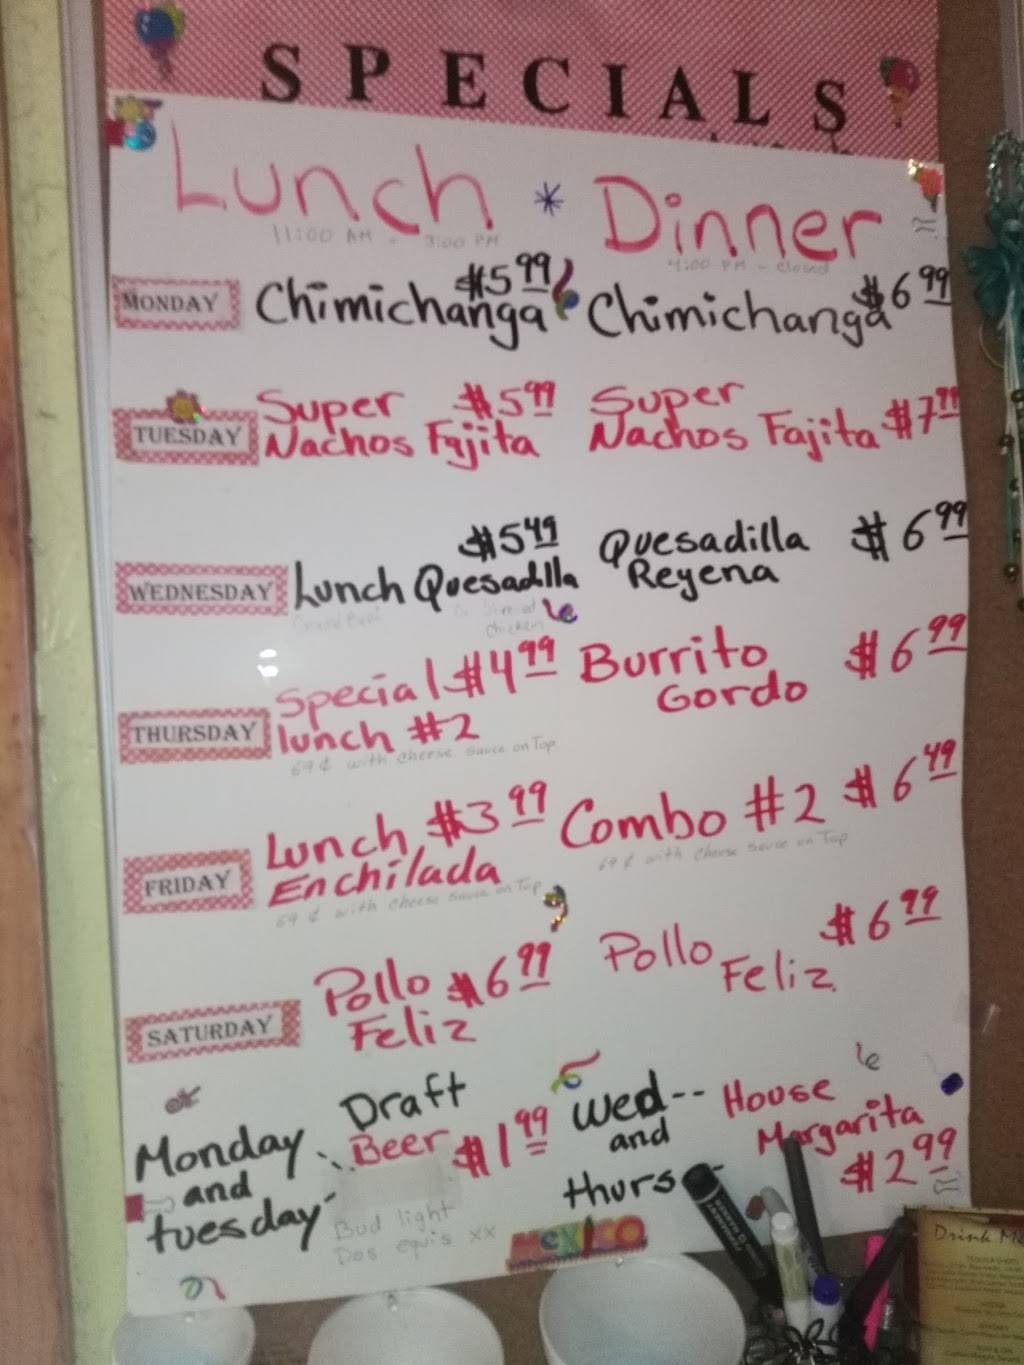 SPECIALS
Lunch * Dinner
11:00 AM - 3:00 PM
4:00 PM - closed
MONDAY
Chimichanga $5.99
Chimichanga $6.99
TUESDAY
Super $5.99
Nachos Fajita
Super
Nachos Fajita $7.99
WEDNESDAY
$5.49
Lunch Quesadilla
chicken
Quesadilla $6.99
Reyena
THURSDAY
Special $4.99
lunch #2
69¢ with cheese sauce on Top
Burrito $6.99
Gordo
FRIDAY
Lunch $3.99
Enchilada
69¢ with cheese sauce on Top
Combo #2 $6.49
69¢ with cheese sauce on Top
SATURDAY
Pollo $6.99
Feliz
Pollo $6.99
Feliz
Monday
and
tuesday
Draft
Beer $1.99
Bud light
Dos equis xx
Wed--
and
thurs-
House
Margarita
$2.99
MEXICO
Drink